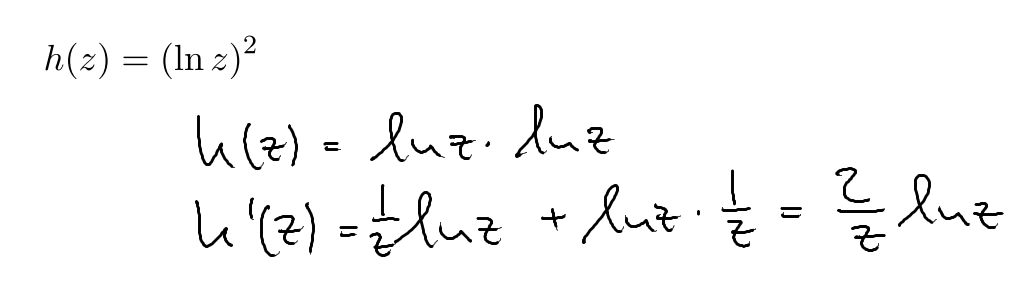 h(z) = (ln z)²
h(z) = ln z · ln z
h'(z) = 1/z ln z + ln z · 1/z = 2/z ln z